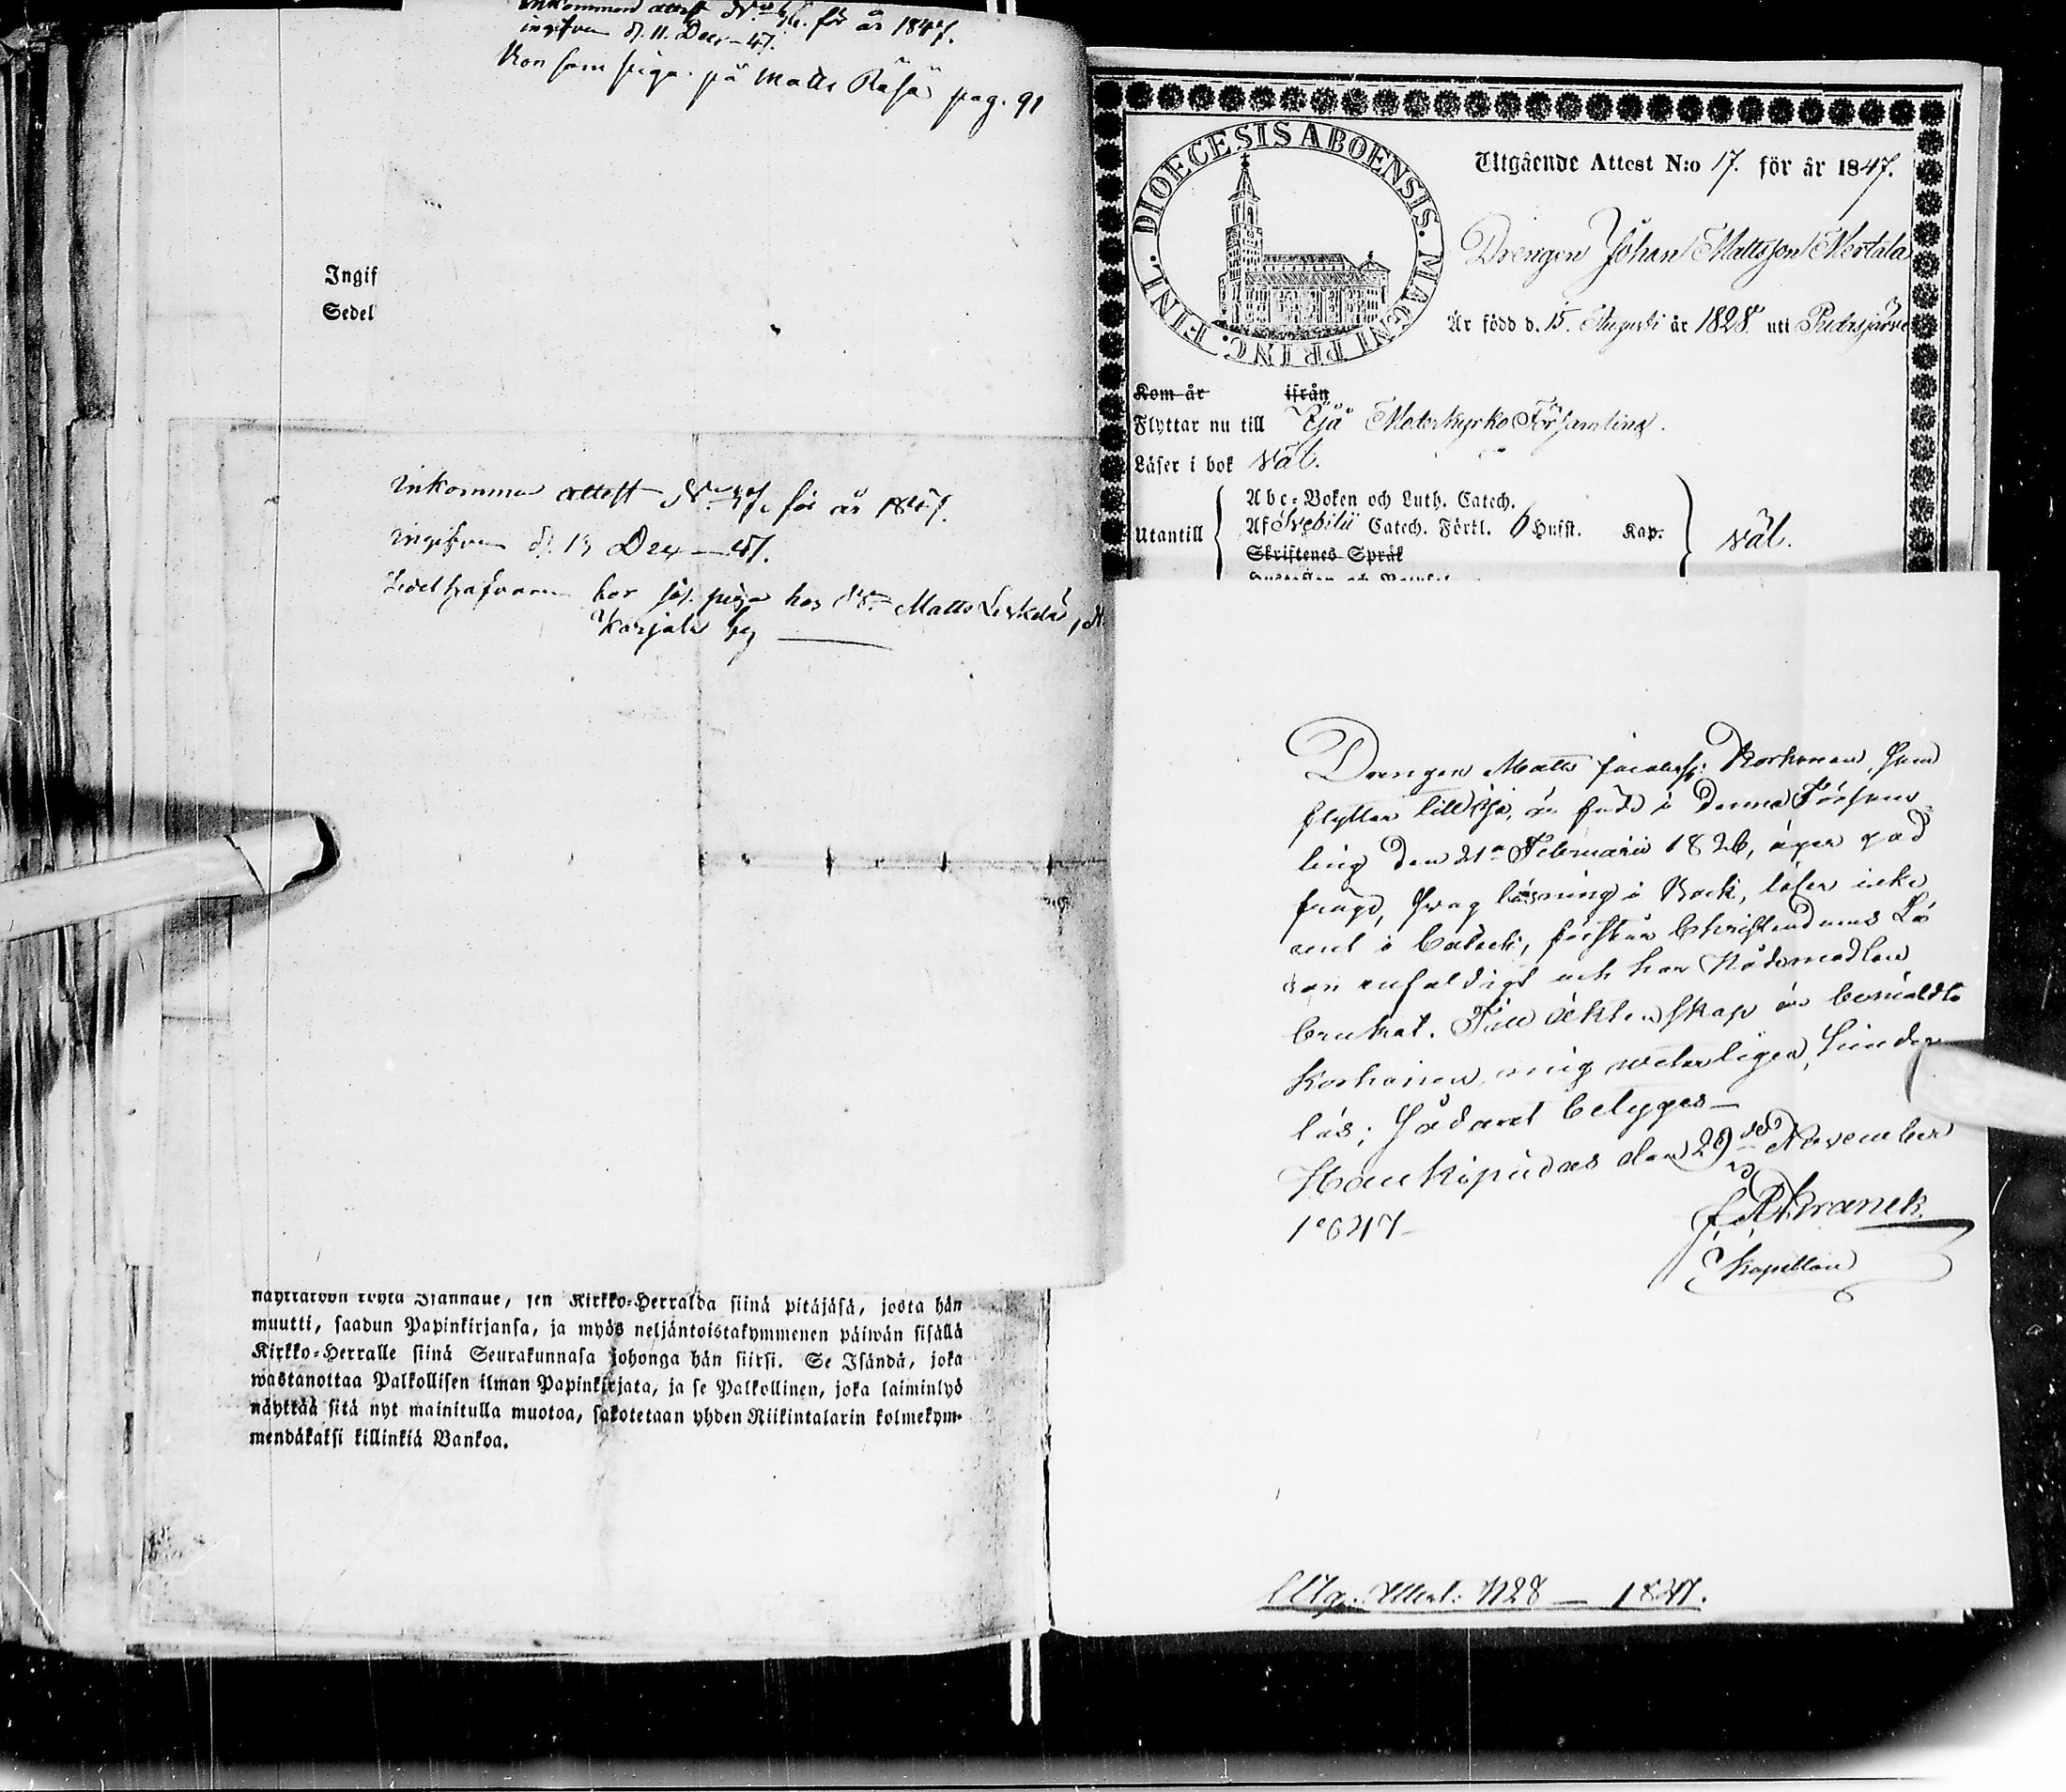 inkommen attest N:o 46. för år 1847.
ingifven d. 11. Dec. 47.
Kom som piga på Matts Räsä pag. 91
Ingif
Sedel
inkommen attest N:o 47, för år 1847.
ingifven d. 13 Dec — 47.
Sedelhafvaren bor som piga hos Matts Leskelä,
Karjala by
näyttäwän löytä Isännälle, sen Kirkko-Herralda siinä pitäjäsä, josta hän
muutti, saadun Papinkirjansa, ja myös neljäntoistakymmenen päiwän sisällä
Kirkko-Herralle siinä Seurakunnasa johonga hän siirsi. Se Isändä, joka
wastanottaa Palkollisen ilman Papinkirjata, ja se Palkollinen, joka laiminlyö
näyttää sitä nyt mainitulla muotoa, sakotetaan yhden Riikintalarin kolmekym-
mendäkaksi killinkiä Bankoa.
DIOECESIS ABOENSIS. MAGNI PRINC. FINL.
Utgående Attest N:o 17. för år 1847.
Drengen Johan Mattsson Mertala
Är född d. 15. Augusti år 1828. uti Pudasjärvi
Kom år ifrån
Flyttar nu till Ijå Moderkyrko Församling.
Läser i bok väl.
Utantill
Abc-Boken och Luth. Catech.
Af Svebilii Catech. Förkl. 6 Hufst. Kap.
Skriftenes Språk
väl.
Drengen Matts Jacobss: Korhonen, som
flyttar till Ijo, är född i denna Försam-
ling den 21a Februarii 1826, äger god
frägd, svag läsning i Bock, läser icke
ant i Catech, förstår Christendoms Lä-
ran enfaldigt och har Nådemedlen
brukat. Till äktenskap är bemäldte
Korhonen, mig veterligen, hinder-
lös; Sådant betyges—
Haukipudas den 29de November
1847—
Kranck
Kapellan
Utg. Attest: N28 — 1847.